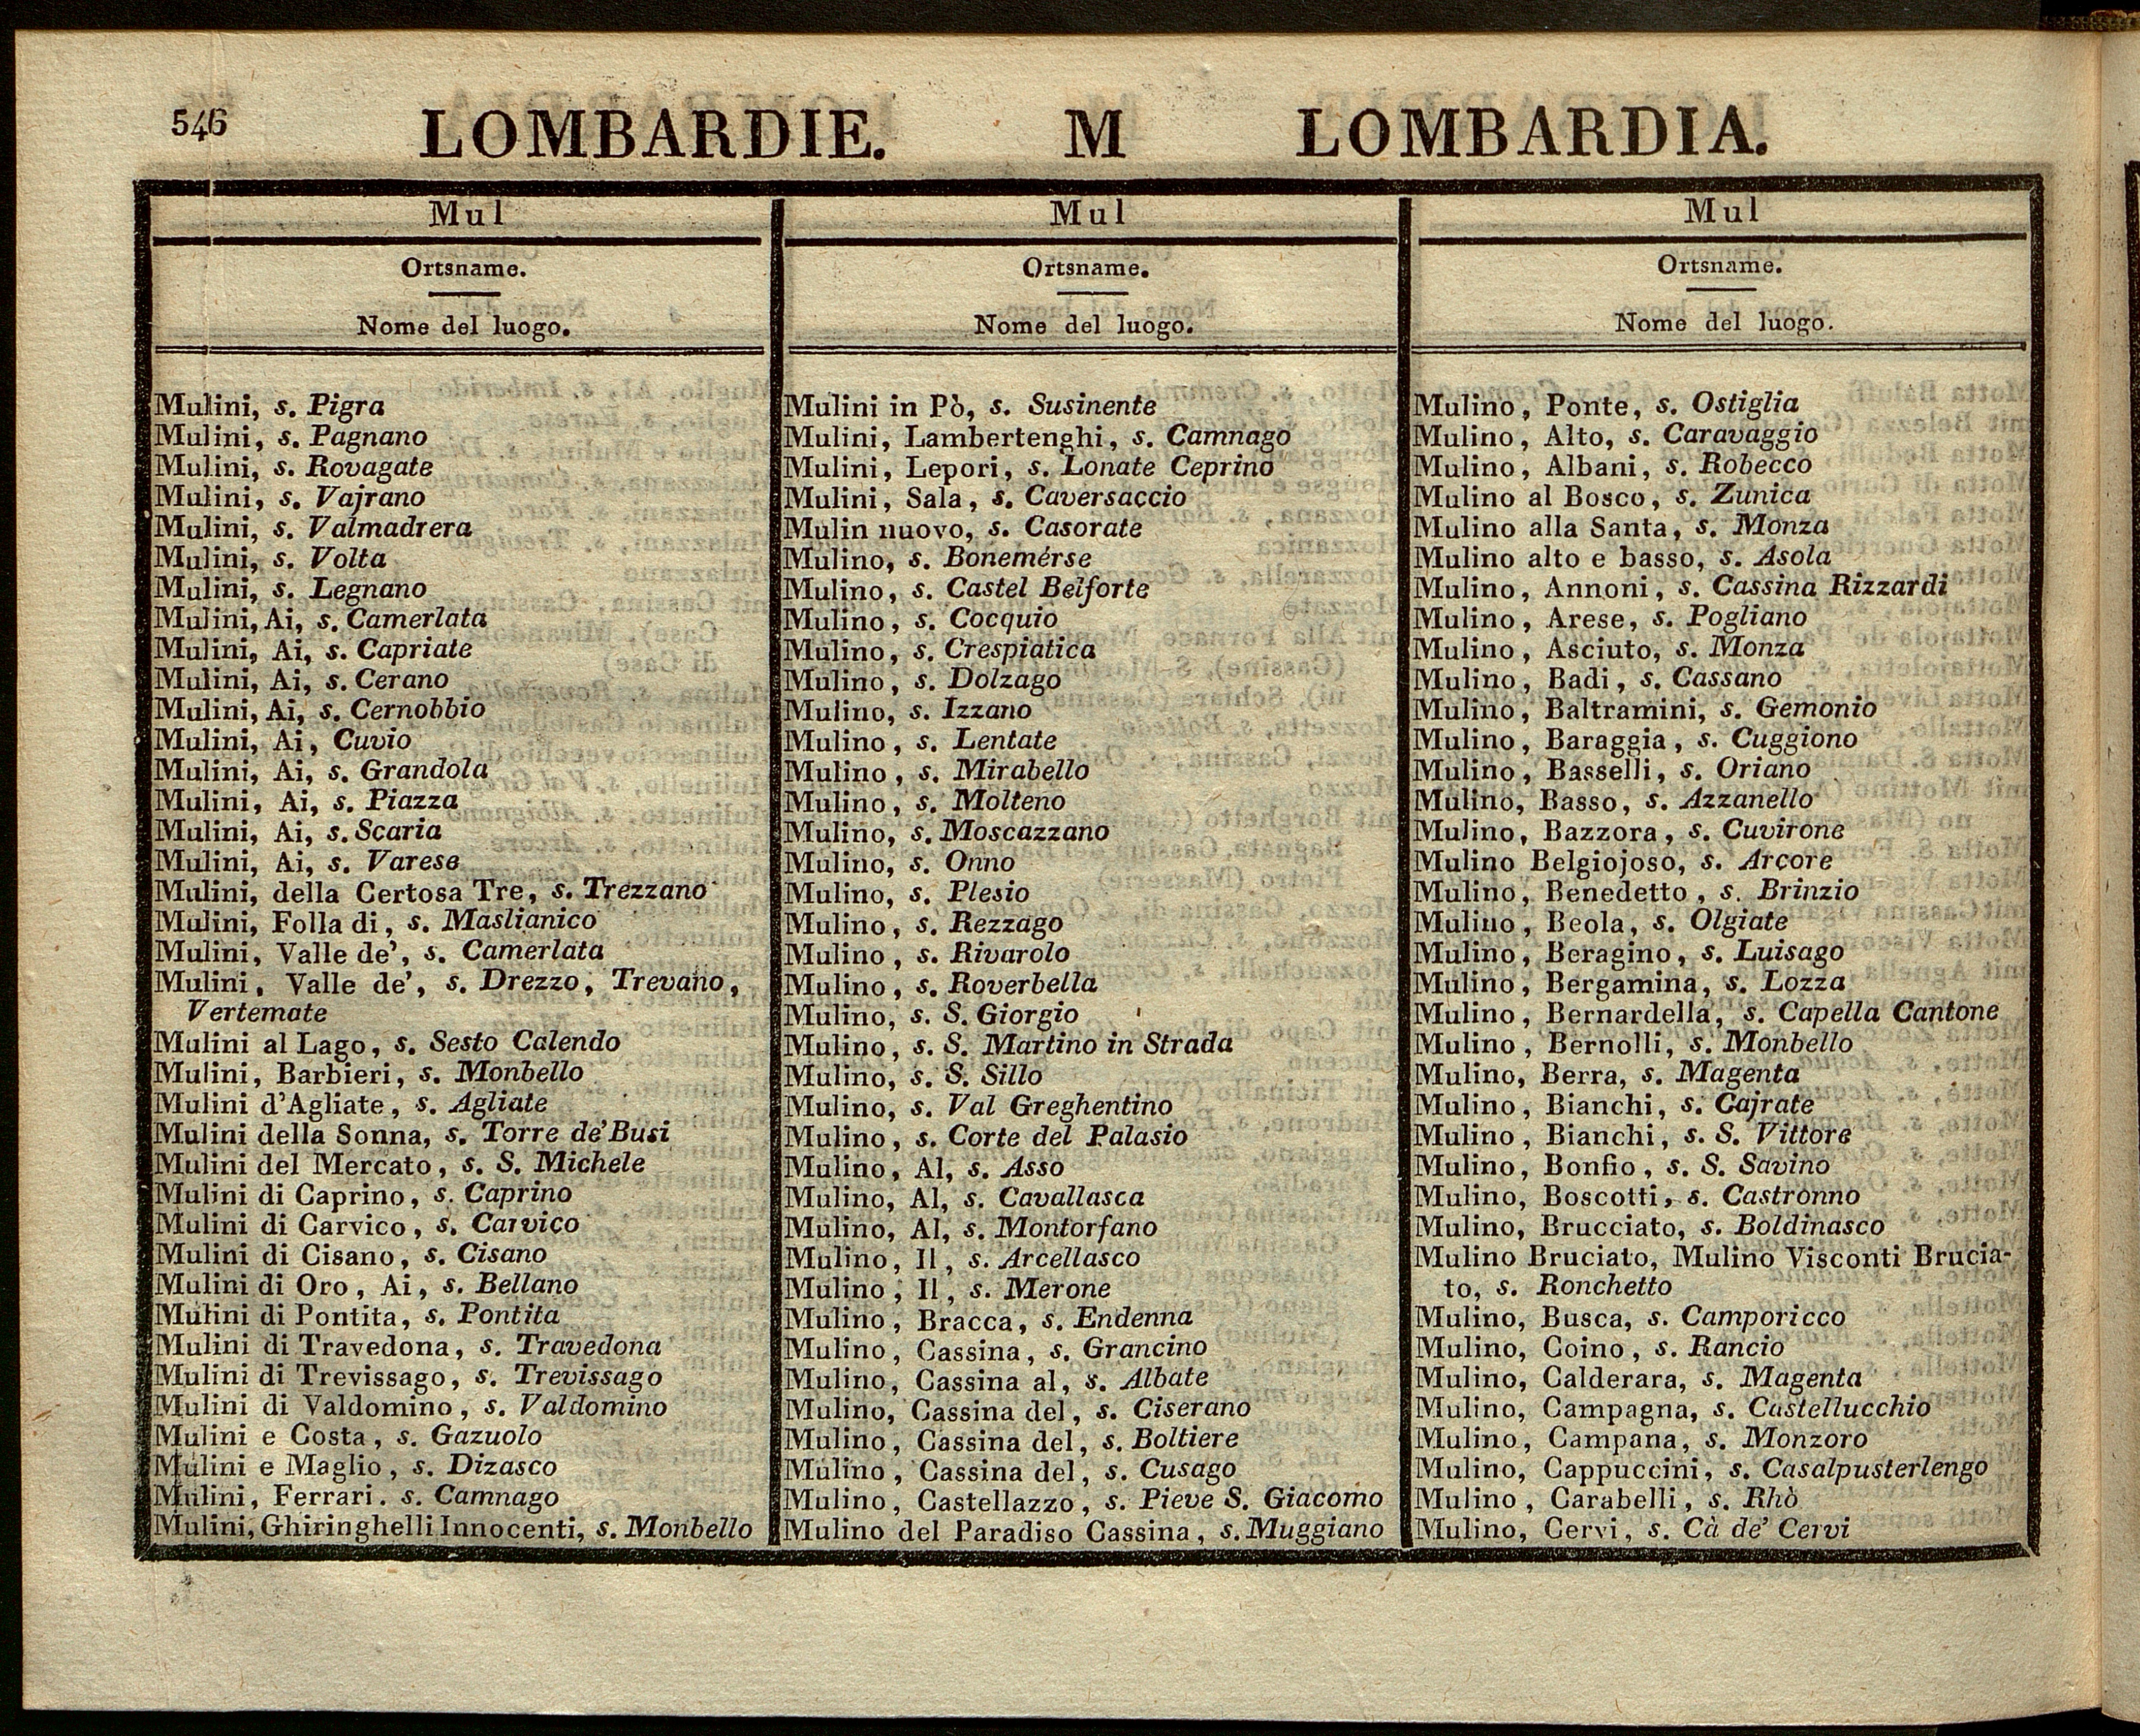 546
LOMBARDIE. M LOMBARDIA.
Mul
Ortsname.
Nome del luogo.
Mulini, s. Pigra
Mulini, s. Pagnano
Mulini, s. Rovagate
Mulini, s. Vajrano
Mulini, s. Valmadrera
Mulini, s. Volta
Mulini, s. Legnano
Mulini, Ai, s. Camerlata
Mulini, Ai, s. Capriate
Mulini, Ai, s. Cerano
Mulini, Ai, s. Cernobbio
Mulini, Ai, Cuvio
Mulini, Ai, s. Grandola
Mulini, Ai, s. Piazza
Mulini, Ai, s. Scaria
Mulini, Ai, s. Varese
Mulini, della Certosa Tre, s. Trezzano
Mulini, Folla di, s. Maslianico
Mulini, Valle de', s. Camerlata
Mulini, Valle de', s. Drezzo, Trevano,
Vertemate
Mulini al Lago, s. Sesto Calendo
Mulini, Barbieri, s. Monbello
Mulini d'Agliate, s. Agliate
Mulini della Sonna, s. Torre de' Busi
Mulini del Mercato, s. S. Michele
Mulini di Caprino, s. Caprino
Mulini di Carvico, s. Carvico
Mulini di Cisano, s. Cisano
Mulini di Oro, Ai, s. Bellano
Mulini di Pontita, s. Pontita
Mulini di Travedona, s. Travedona
Mulini di Trevissago, s. Trevissago
Mulini di Valdomino, s. Valdomino
Mulini e Costa, s. Gazuolo
Mulini e Maglio, s. Dizasco
Mulini, Ferrari. s. Camnago
Mulini, Ghiringhelli Innocenti, s. Monbello
Mul
Ortsname.
Nome del luogo.
Mulini in Pò, s. Susinente
Mulini, Lambertenghi, s. Camnago
Mulini, Lepori, s. Lonate Ceprino
Mulini, Sala, s. Caversaccio
Mulin nuovo, s. Casorate
Mulino, s. Bonemerse
Mulino, s. Castel Belforte
Mulino, s. Cocquio
Mulino, s. Crespiatica
Mulino, s. Dolzago
Mulino, s. Izzano
Mulino, s. Lentate
Mulino, s. Mirabello
Mulino, s. Molteno
Mulino, s. Moscazzano
Mulino, s. Onno
Mulino, s. Plesio
Mulino, s. Rezzago
Mulino, s. Rivarolo
Mulino, s. Roverbella
Mulino, s. S. Giorgio
Mulino, s. S. Martino in Strada
Mulino, s. S. Sillo
Mulino, s. Val Greghentino
Mulino, s. Corte del Palasio
Mulino, Al, s. Asso
Mulino, Al, s. Cavallasca
Mulino, Al, s. Montorfano
Mulino, Il, s. Arcellasco
Mulino, Il, s. Merone
Mulino, Bracca, s. Endenna
Mulino, Cassina, s. Grancino
Mulino, Cassina al, s. Albate
Mulino, Cassina del, s. Ciserano
Mulino, Cassina del, s. Boltiere
Mulino, Cassina del, s. Cusago
Mulino, Castellazzo, s. Pieve S. Giacomo
Mulino del Paradiso Cassina, s. Muggiano
Mul
Ortsname.
Nome del luogo.
Mulino, Ponte, s. Ostiglia
Mulino, Alto, s. Caravaggio
Mulino, Albani, s. Robecco
Mulino al Bosco, s. Zunica
Mulino alla Santa, s. Monza
Mulino alto e basso, s. Asola
Mulino, Annoni, s. Cassina Rizzardi
Mulino, Arese, s. Pogliano
Mulino, Asciuto, s. Monza
Mulino, Badi, s. Cassano
Mulino, Baltramini, s. Gemonio
Mulino, Baraggia, s. Cuggiono
Mulino, Basselli, s. Oriano
Mulino, Basso, s. Azzanello
Mulino, Bazzora, s. Cuvirone
Mulino Belgiojoso, s. Arcore
Mulino, Benedetto, s. Brinzio
Mulino, Beola, s. Olgiate
Mulino, Beragino, s. Luisago
Mulino, Bergamina, s. Lozza
Mulino, Bernardella, s. Capella Cantone
Mulino, Bernolli, s. Monbello
Mulino, Berra, s. Magenta
Mulino, Bianchi, s. Cajrate
Mulino, Bianchi, s. S. Vittore
Mulino, Bonfio, s. S. Savino
Mulino, Boscotti, s. Castronno
Mulino, Brucciato, s. Boldinasco
Mulino Bruciato, Mulino Visconti Brucia-
to, s. Ronchetto
Mulino, Busca, s. Camporicco
Mulino, Coino, s. Rancio
Mulino, Calderara, s. Magenta
Mulino, Campagna, s. Castellucchio
Mulino, Campana, s. Monzoro
Mulino, Cappuccini, s. Casalpusterlengo
Mulino, Carabelli, s. Rhò
Mulino, Cervi, s. Cà de' Cervi